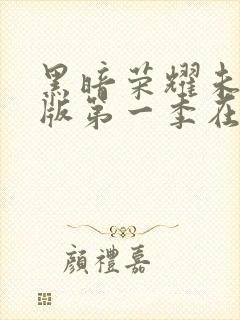 黑暗荣耀未
版第一季在
顏禮嘉